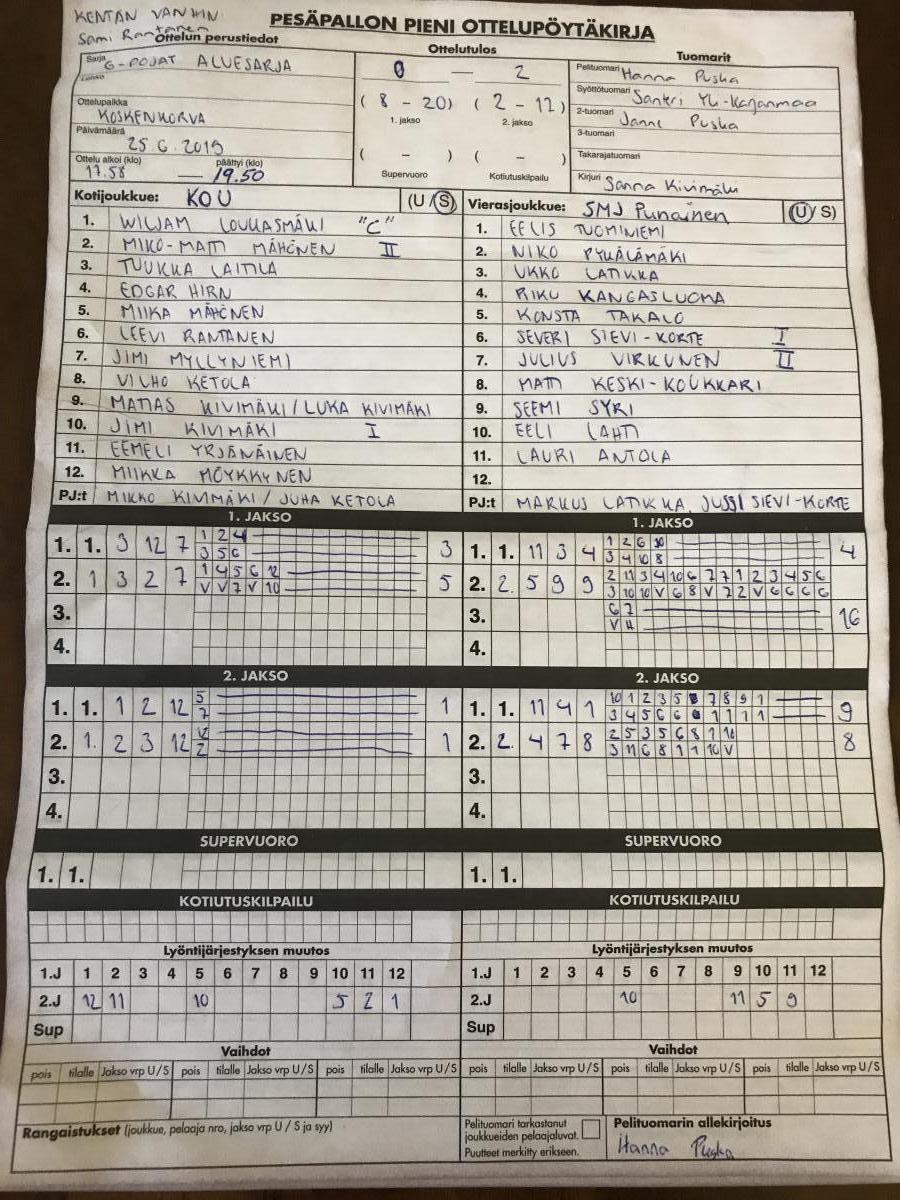 KENTÄN VANHIN
Sami Rantanen
PESÄPALLON PIENI OTTELUPÖYTÄKIRJA
Ottelun perustiedot
Ottelutulos
Tuomarit
Sarja G-POJAT ALUESARJA
Lohko
Ottelupaikka
KOSKENKORVA
Päivämäärä
25.6.2019
Ottelu alkoi (klo) päättyi (klo)
17.58 — 19.50
0 — 2
( 8 - 20) ( 2 - 17 )
1. jakso 2. jakso
( - ) ( - )
Supervuoro Kotiutuskilpailu
Pelituomari Hanna Puska
Syöttötuomari Santeri Yli-Kajanmaa
2-tuomari Janne Puska
3-tuomari
Takarajatuomari
Kirjuri Sanna Kivimäki
Kotijoukkue: KOU (U/S)
1. WILJAM LOUKASMÄKI "C"
2. MIKO-MATTI MÄHÖNEN II
3. TUUKKA LAITILA
4. EDGAR HIRN
5. MIIKA MÄHÖNEN
6. LEEVI RANTANEN
7. JIMI MYLLYNIEMI
8. VILHO KETOLA
9. MATIAS KIVIMÄKI / LUKA KIVIMÄKI
10. JIMI KIVIMÄKI I
11. EEMELI YRJÄNÄINEN
12. MIIKKA MÖYKKYNEN
PJ:t MIKKO KIVIMÄKI / JUHA KETOLA
Vierasjoukkue: SMJ Punainen (U/S)
1. EELIS TUOMINIEMI
2. NIKO PYHÄLÄMÄKI
3. UKKO LATIKKA
4. RIKU KANGASLUOMA
5. KONSTA TAKALO
6. SEVERI SIEVI-KORTE I
7. JULIUS VIRKUNEN II
8. MATTI KESKI-KOUKKARI
9. SEEMI SYRI
10. EELI LAHTI
11. LAURI ANTOLA
12.
PJ:t MARKUS LATIKKA, JUSSI SIEVI-KORTE
1. JAKSO
1. 1. 3 12 7 1 2 4 3
3 5 6
2. 1 3 2 7 1 4 5 6 12 5
V V 7 V 10
3.
4.
1. JAKSO
1. 1. 11 3 4 1 2 6 10 4
3 4 10 8
2. 2. 5 9 9 2 11 3 4 10 6 7 7 1 2 3 4 5 6
3 10 10 V 6 8 V 7 2 V 6 6 6 6
3. 6 7 16
V 11
4.
2. JAKSO
1. 1. 1 2 12 5 1
7
2. 1. 2 3 12 12 1
2
3.
4.
2. JAKSO
1. 1. 11 4 1 10 1 2 3 5 7 8 9 1 9
3 4 5 6 6 1 1 1 1
2. 2. 4 7 8 2 5 3 5 6 8 1 10 8
3 11 6 8 1 1 10 V
3.
4.
SUPERVUORO
1. 1.
SUPERVUORO
1. 1.
KOTIUTUSKILPAILU
KOTIUTUSKILPAILU
Lyöntijärjestyksen muutos
1.J 1 2 3 4 5 6 7 8 9 10 11 12
2.J 12 11 10 5 2 1
Sup
Lyöntijärjestyksen muutos
1.J 1 2 3 4 5 6 7 8 9 10 11 12
2.J 10 11 5 9
Sup
Vaihdot
pois tilalle Jakso vrp U/S pois tilalle Jakso vrp U/S pois tilalle Jakso vrp U/S
Vaihdot
pois tilalle Jakso vrp U/S pois tilalle Jakso vrp U/S pois tilalle Jakso vrp U/S
Rangaistukset (joukkue, pelaaja nro, jakso vrp U / S ja syy)
Pelituomari tarkastanut
joukkueiden pelaajaluvat.
Puutteet merkitty erikseen.
Pelituomarin allekirjoitus
Hanna Puska